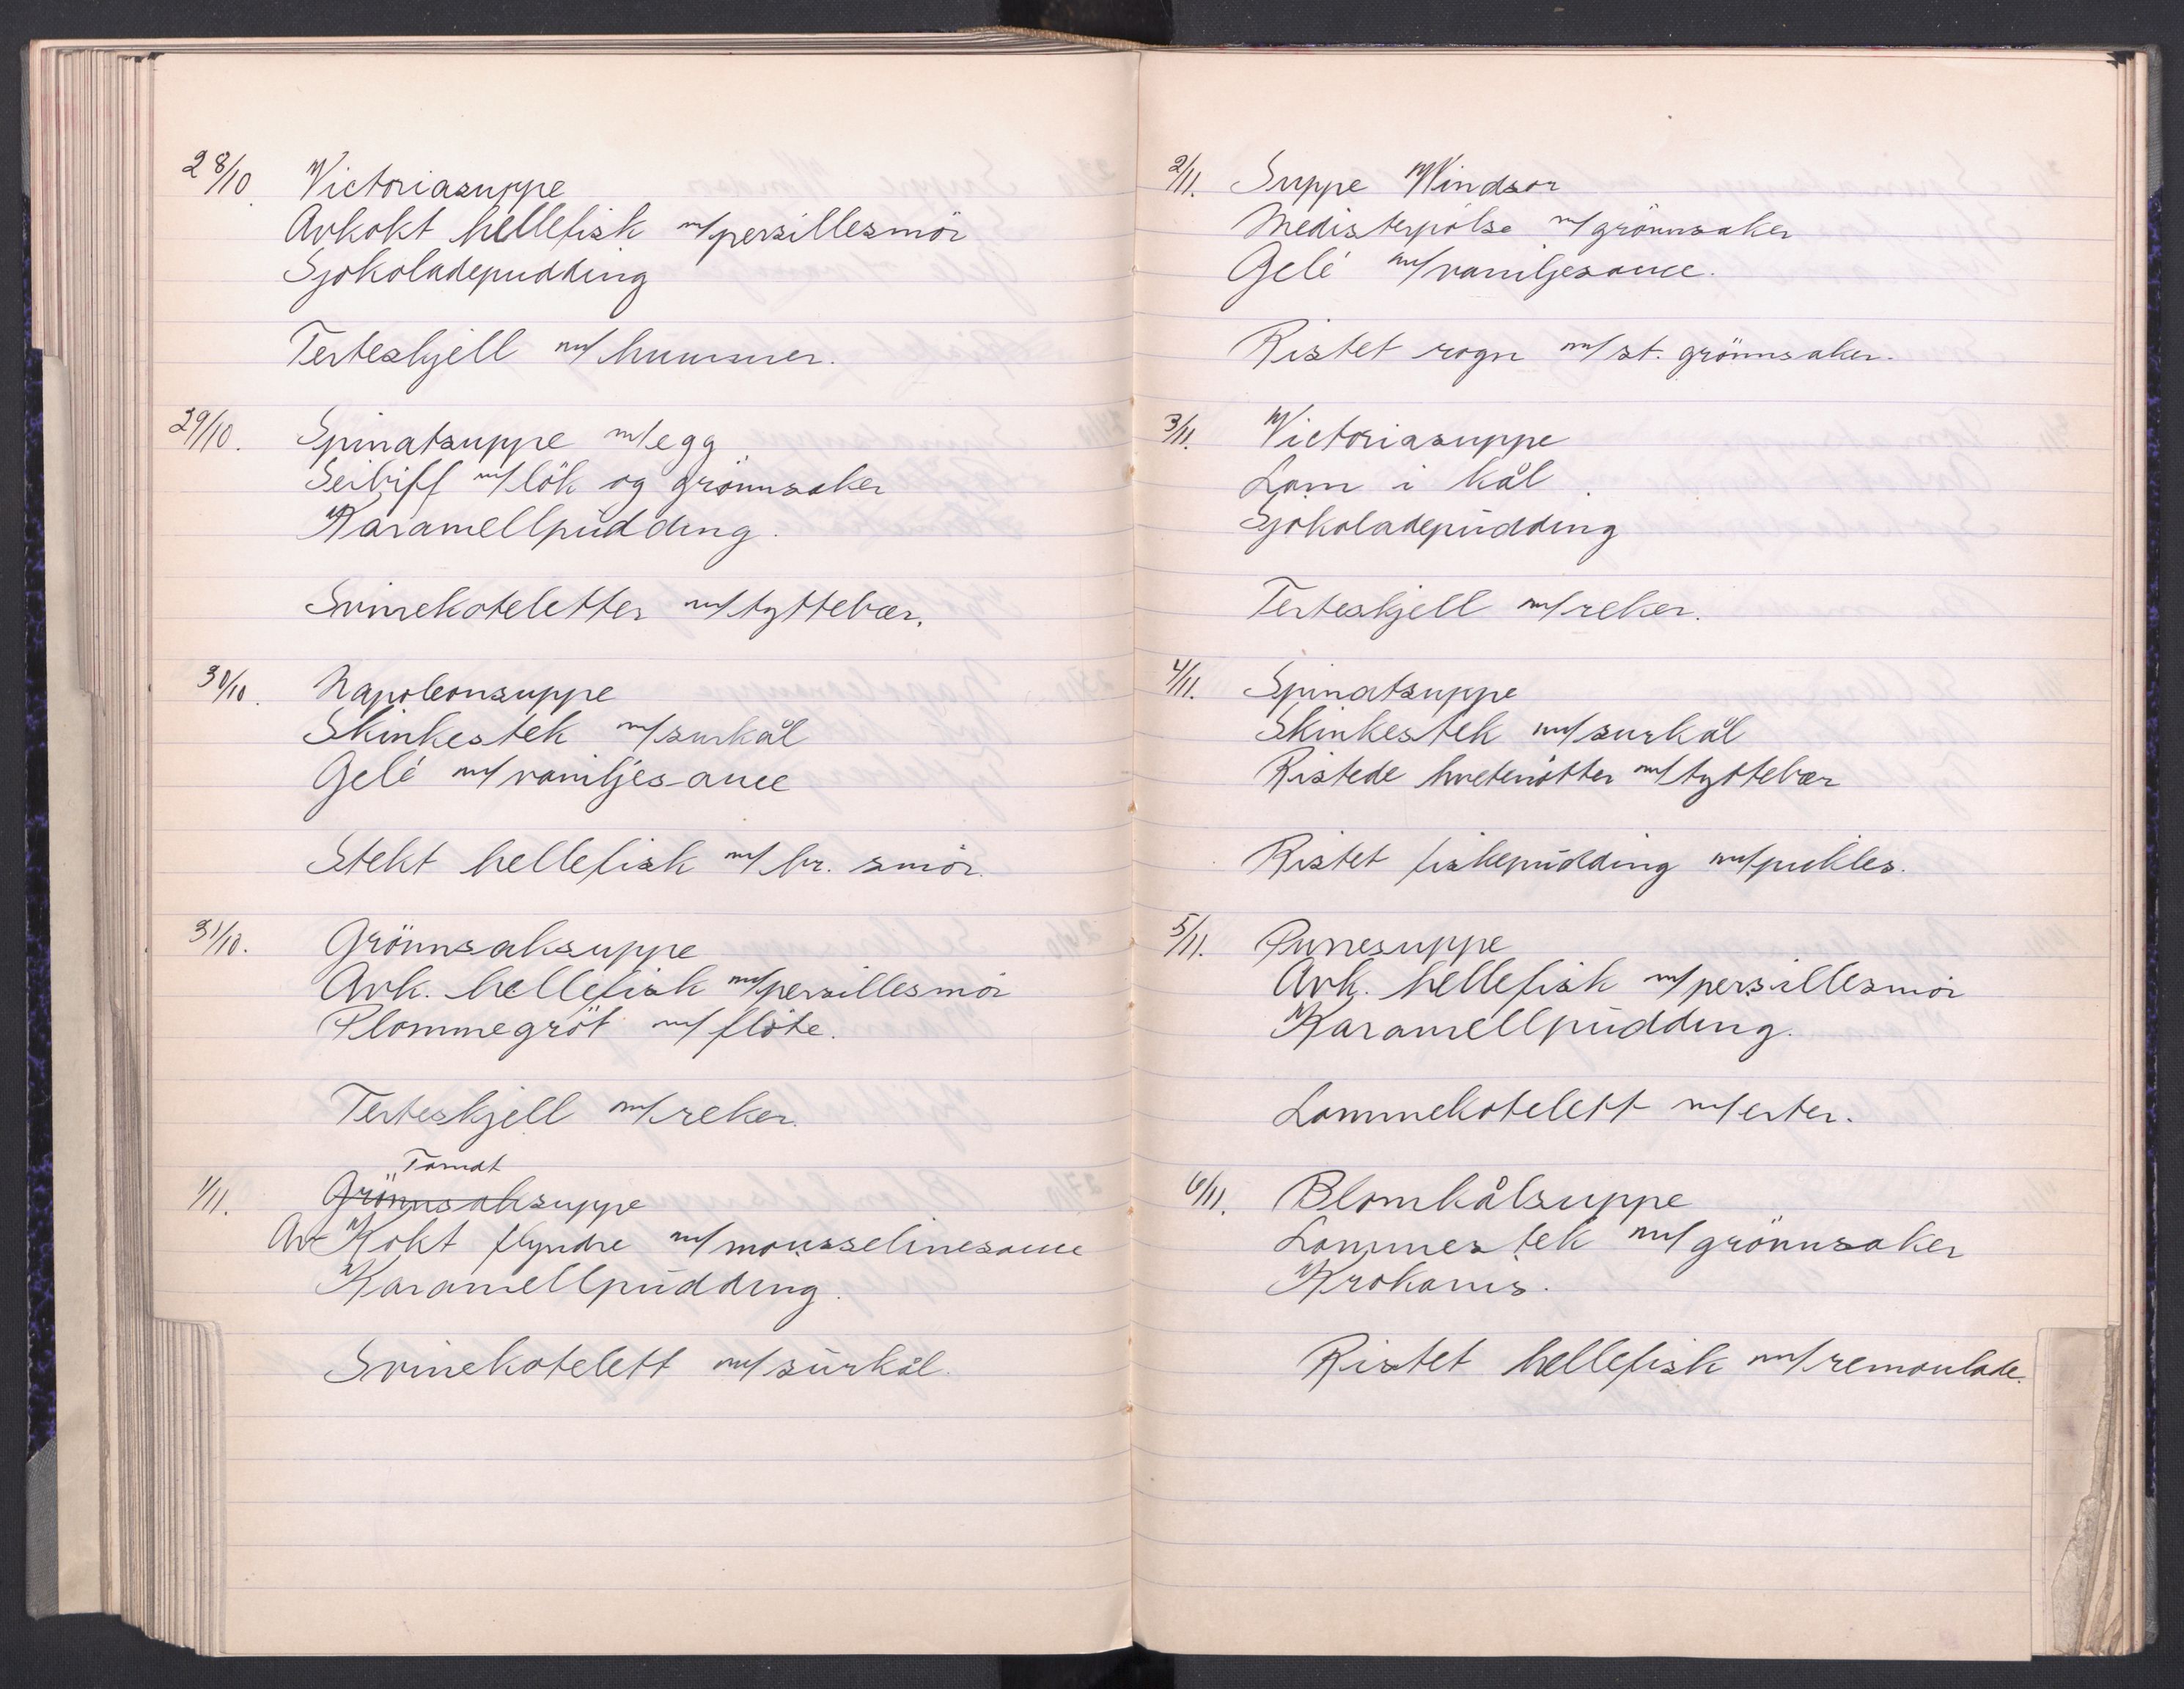 28/10. Victoriasuppe
Avkokt hellefisk m/persillesmör
Sjokoladepudding
Terteskjell m/hummer.
29/10. Spinatsuppe m/egg
Seibiff m/lök og grönnsaker
Karamellpudding.
Svinekoteletter m/tyttebær.
30/10. Napoleonsuppe
Skinkestek m/surkål
Gelé m/vaniljesauce
Stekt hellefisk m/br. smör.
31/10. Grönnsaksuppe
Avk. hellefisk m/persillesmör
Plommegröt m/flöte.
Terteskjell m/reker.
Tomat
1/11. Grönnsaksuppe
Av Kokt flyndre m/mousselinesauce
Karamellpudding.
Svinekotelett m/surkål.
2/11. Suppe Windsor
Medisterpölse m/grönnsaker
Gelé m/vaniljesauce.
Ristet rogn m/st. grönnsaker.
3/11. Victoriasuppe
Lam i kål.
Sjokoladepudding
Terteskjell m/reker.
4/11. Spinatsuppe
Skinkestek m/surkål
Ristede hvetenötter m/tyttebær
Ristet fiskepudding m/pickles.
5/11. Purresuppe
Avk. hellefisk m/persillesmör
Karamellpudding.
Lammekotelett m/erter.
6/11. Blomkålsuppe
Lammestek m/grönnsaker
Krokanis.
Ristet hellefisk m/remoulade.